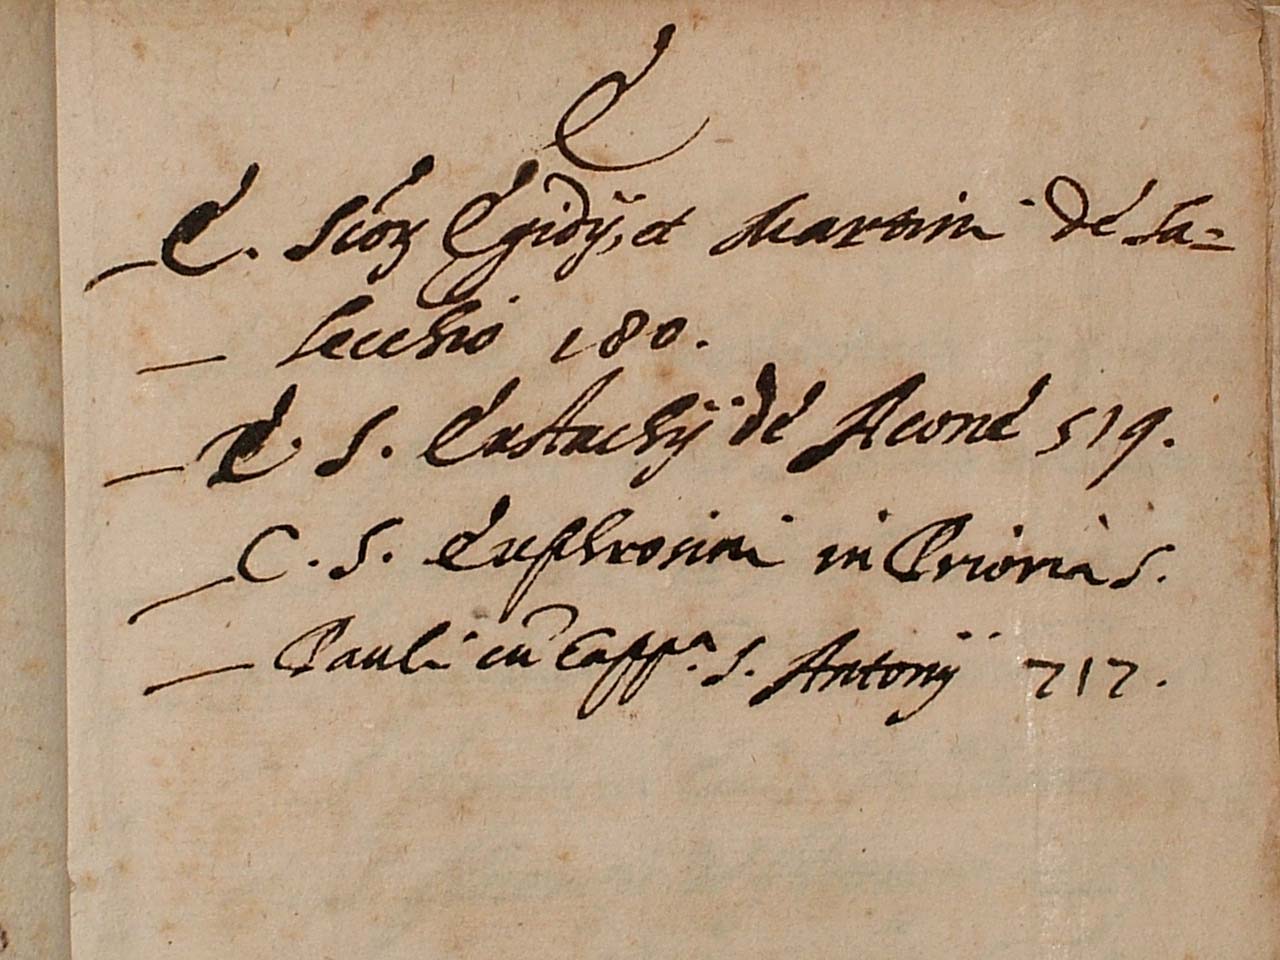 E
E. Scõr Egidij, et Martini de Sa=
lecchio 180.
E. S. Eustachij de Acone 519.
C. S. Euphrosini in Prioria S.
Pauli in Capp.ª S. Antonij 717.